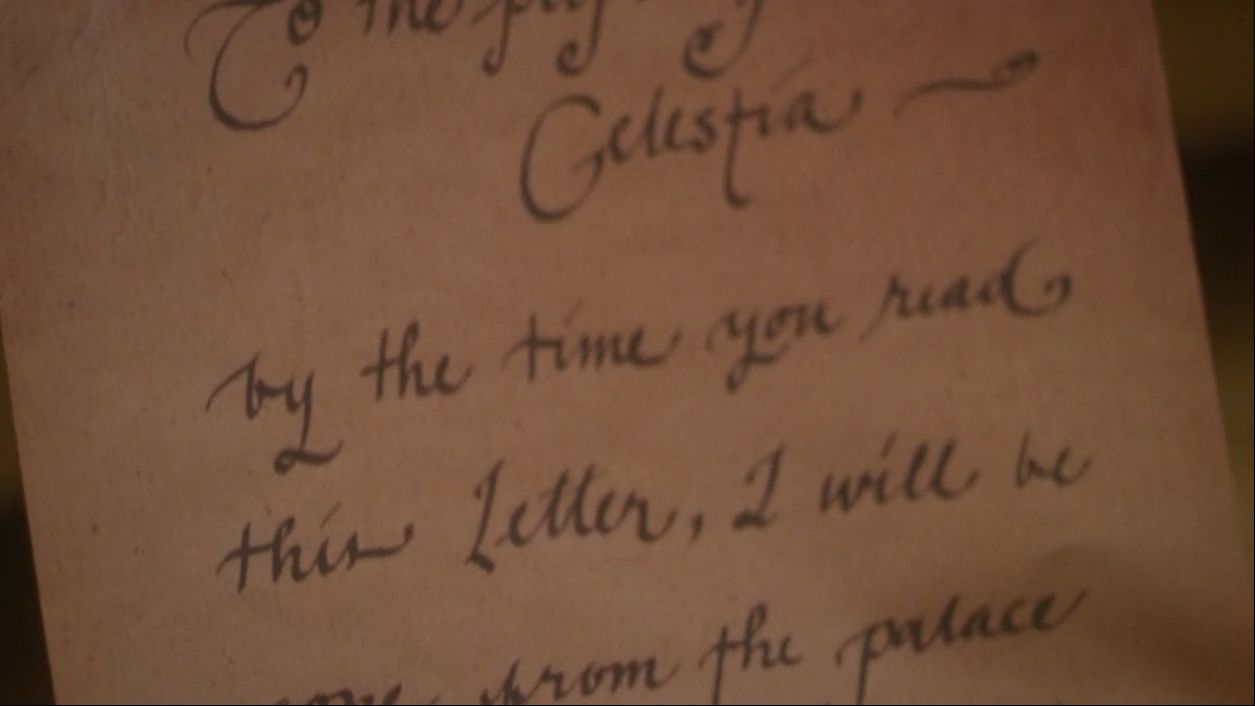 To the
Celestia
by the time you read
this Letter, I will be
gone from the palace